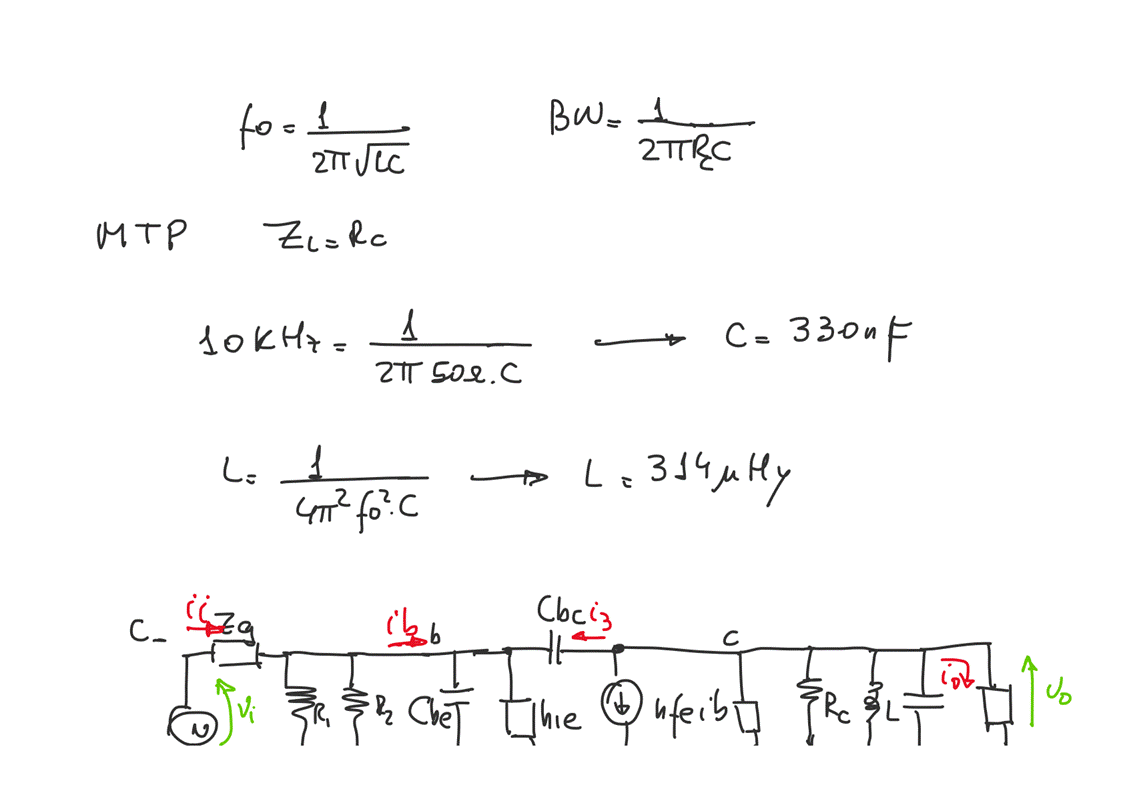 fo = 1 / 2π√LC BW = 1 / 2πRcC
MTP ZL = Rc
10KHz = 1 / 2π 50Ω.C → C = 330nF
L = 1 / 4π² fo².C → L = 314μHy
C- ii Zg ib b Cbc i3 c
Vi R1 R2 Cbe hie hfeib Rc L io Vo